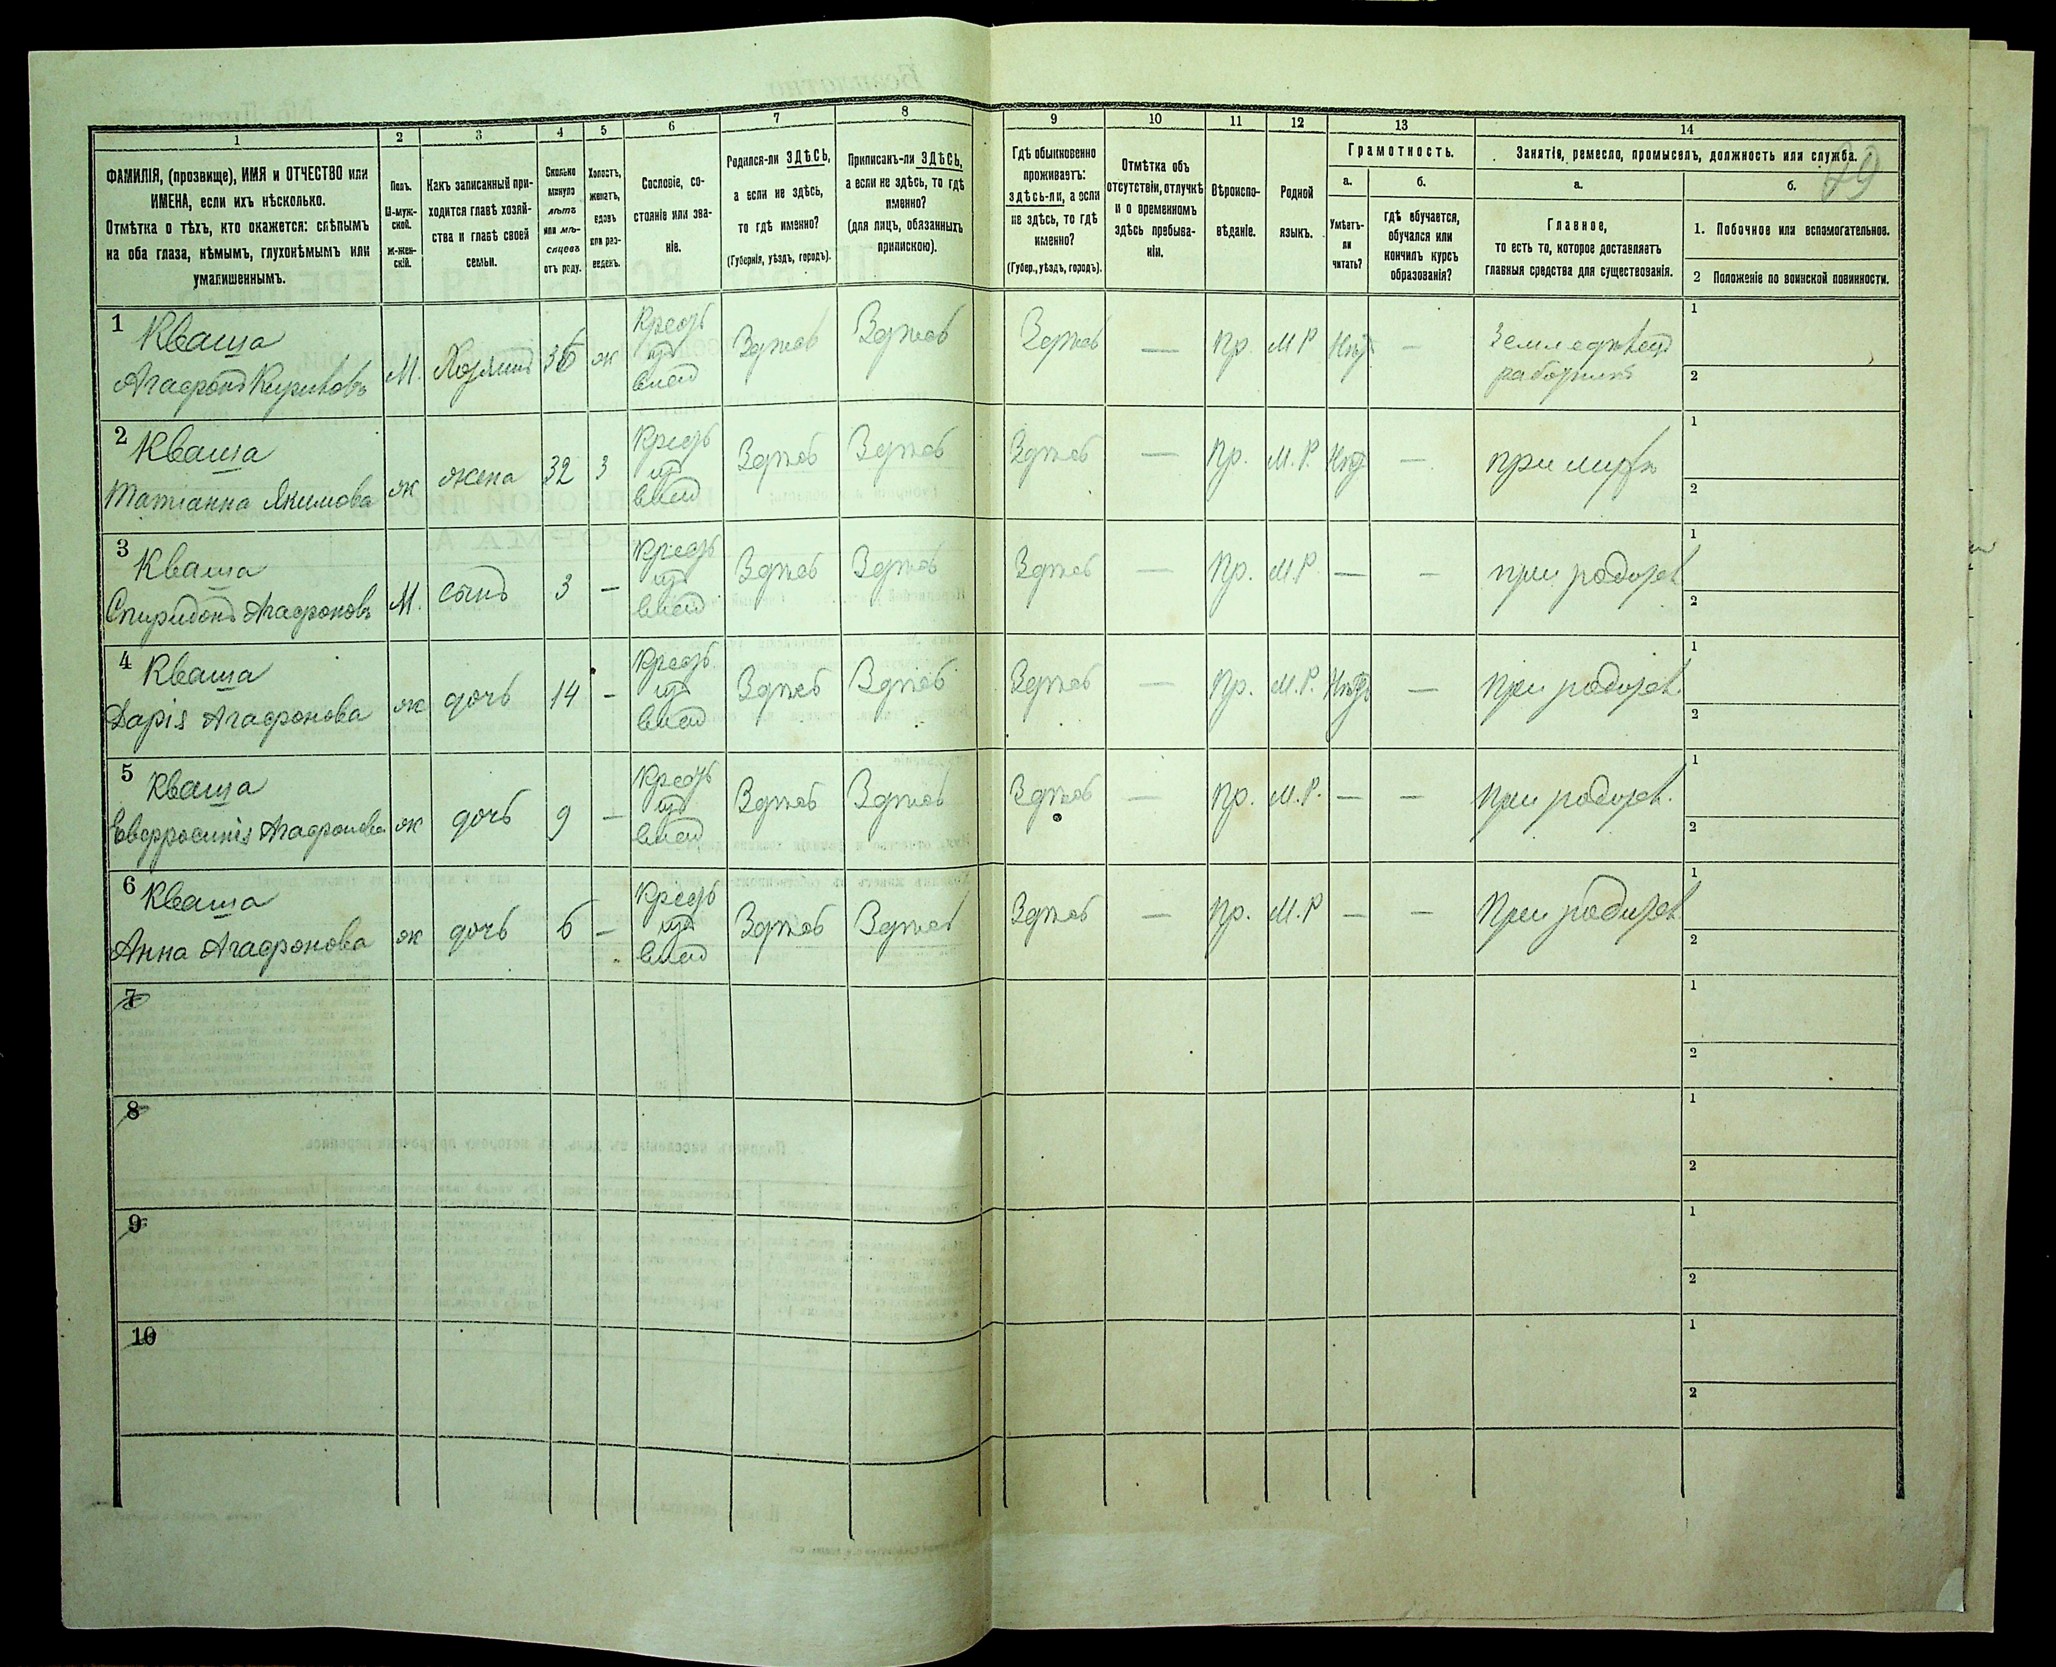 29
1 2 3 4 5 6 7 8 9 10 11 12 13 14
ФАМИЛІЯ, (прозвище), ИМЯ и ОТЧЕСТВО или
ИМЕНА, если ихъ нѣсколько.
Отмѣтка о тѣхъ, кто окажется: слѣпымъ
на оба глаза, нѣмымъ, глухонѣмымъ или
умалишеннымъ.
Полъ.
М-муж-
ской.
Ж-жен-
скій.
Какъ записанный при-
ходится главѣ хозяй-
ства и главѣ своей
семьи.
Сколько
минуло
лѣтъ
или мѣ-
сяцевъ
отъ роду.
Холостъ,
женатъ,
вдовъ
или раз-
веденъ.
Сословіе, со-
стояніе или зва-
ніе.
Родился-ли ЗДѢСЬ,
а если не здѣсь,
то гдѣ именно?
(Губернія, уѣздъ, городъ).
Приписанъ-ли ЗДѢСЬ,
а если не здѣсь, то гдѣ
именно?
(для лицъ, обязанныхъ
припискою).
Гдѣ обыкновенно
проживаетъ:
здѣсь-ли, а если
не здѣсь, то гдѣ
именно?
(Губер., уѣздъ, городъ).
Отмѣтка объ
отсутствіи, отлучкѣ
и о временномъ
здѣсь пребыва-
ніи.
Вѣроиспо-
вѣданіе.
Родной
языкъ.
Грамотность.
а.
Умѣетъ-
ли
читать?
б.
гдѣ обучается,
обучался или
кончилъ курсъ
образованія?
Занятіе, ремесло, промыселъ, должность или служба.
а.
Главное,
то есть то, которое доставляетъ
главныя средства для существованія.
б.
1. Побочное или вспомогательное.
2 Положеніе по воинской повинности.
1 Кваша
Агафонъ Кириковъ М. Хозяинъ 36 ж Крест из влад Здѣсь Здѣсь Здѣсь — Пр. М.Р. Нѣт — Земледѣлец работникъ 1 2
2 Кваша
Татіанна Якимова ж жена 32 з Крест из влад Здѣсь Здѣсь Здѣсь — Пр. М.Р. Нѣт — при мужѣ 1 2
3 Кваша
Спиридонъ Агафоновъ М. сынъ 3 — Крест из влад Здѣсь Здѣсь Здѣсь — Пр. М.Р. — — при родител 1 2
4 Кваша
Дарія Агафонова ж дочь 14 — Крест из влад Здѣсь Здѣсь Здѣсь — Пр. М.Р. Нѣтъ — При родител. 1 2
5 Кваша
Евфросинія Агафонова ж дочь 9 — Крест из влад Здѣсь Здѣсь Здѣсь — Пр. М.Р. — — При родител. 1 2
6 Кваша
Анна Агафонова ж дочь 6 — Крест из влад Здѣсь Здѣсь Здѣсь — Пр. М.Р — — При родител. 1 2
7 1 2
8 1 2
9 1 2
10 1 2